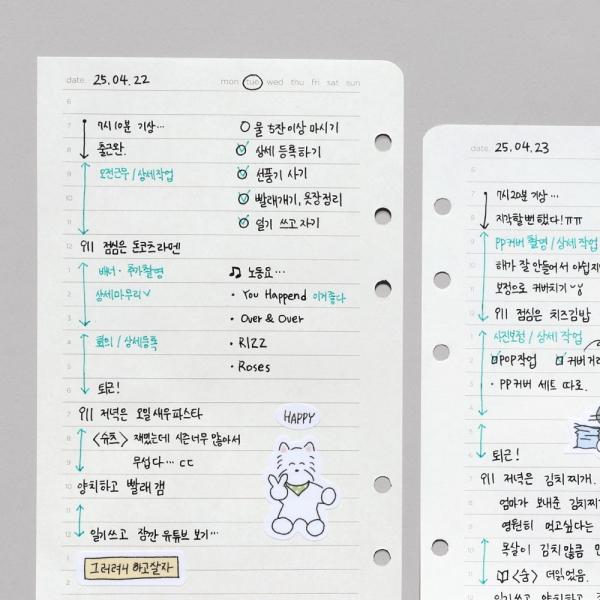 date. 25.04.22
mon tue wed thu fri sat sun
6
7 7시 10분 기상…
8 출근완.
9 오전근무 / 상세작업
10
11
○ 물 5잔 이상 마시기
상세 등록하기
선풍기 사기
빨래개기, 옷장정리
일기 쓰고 자기
12 점심은 돈코츠라멘
1 배너 · 추가촬영
2 상세마무리
3
4 회의 / 상세등록
5
6 퇴근!
♫ 노동요…
· You Happend 이거좋다
· Over & Over
· RIZZ
· Roses
7 저녁은 오일새우파스타
8 <슈츠> 재밌는데 시즌너무 많아서
9 무섭다… ㄷㄷ
10 양치하고 빨래 갬
11
12 일기쓰고 잠깐 유튜브 보기…
1
2
HAPPY
그러려니 하고살자
date. 25.04.23
6
7 7시 20분 기상…
8 지각할 뻔 했다! ㅠㅠ
9 PP커버 촬영 / 상세작업
10 해가 잘 안들어서
11 보정으로 커버치기
12 점심은 치즈김밥
1 사진보정 / 상세 작업
2 POP작업
커버
3 · PP커버 세트 따로.
4
5
6 퇴근!
7 저녁은 김치찌개.
8 엄마가 보내준 김치
9 영원히 먹고싶다는
10 목살이 김치만큼
11 <숨> 더읽었음.
12 일기쓰고 양치하고